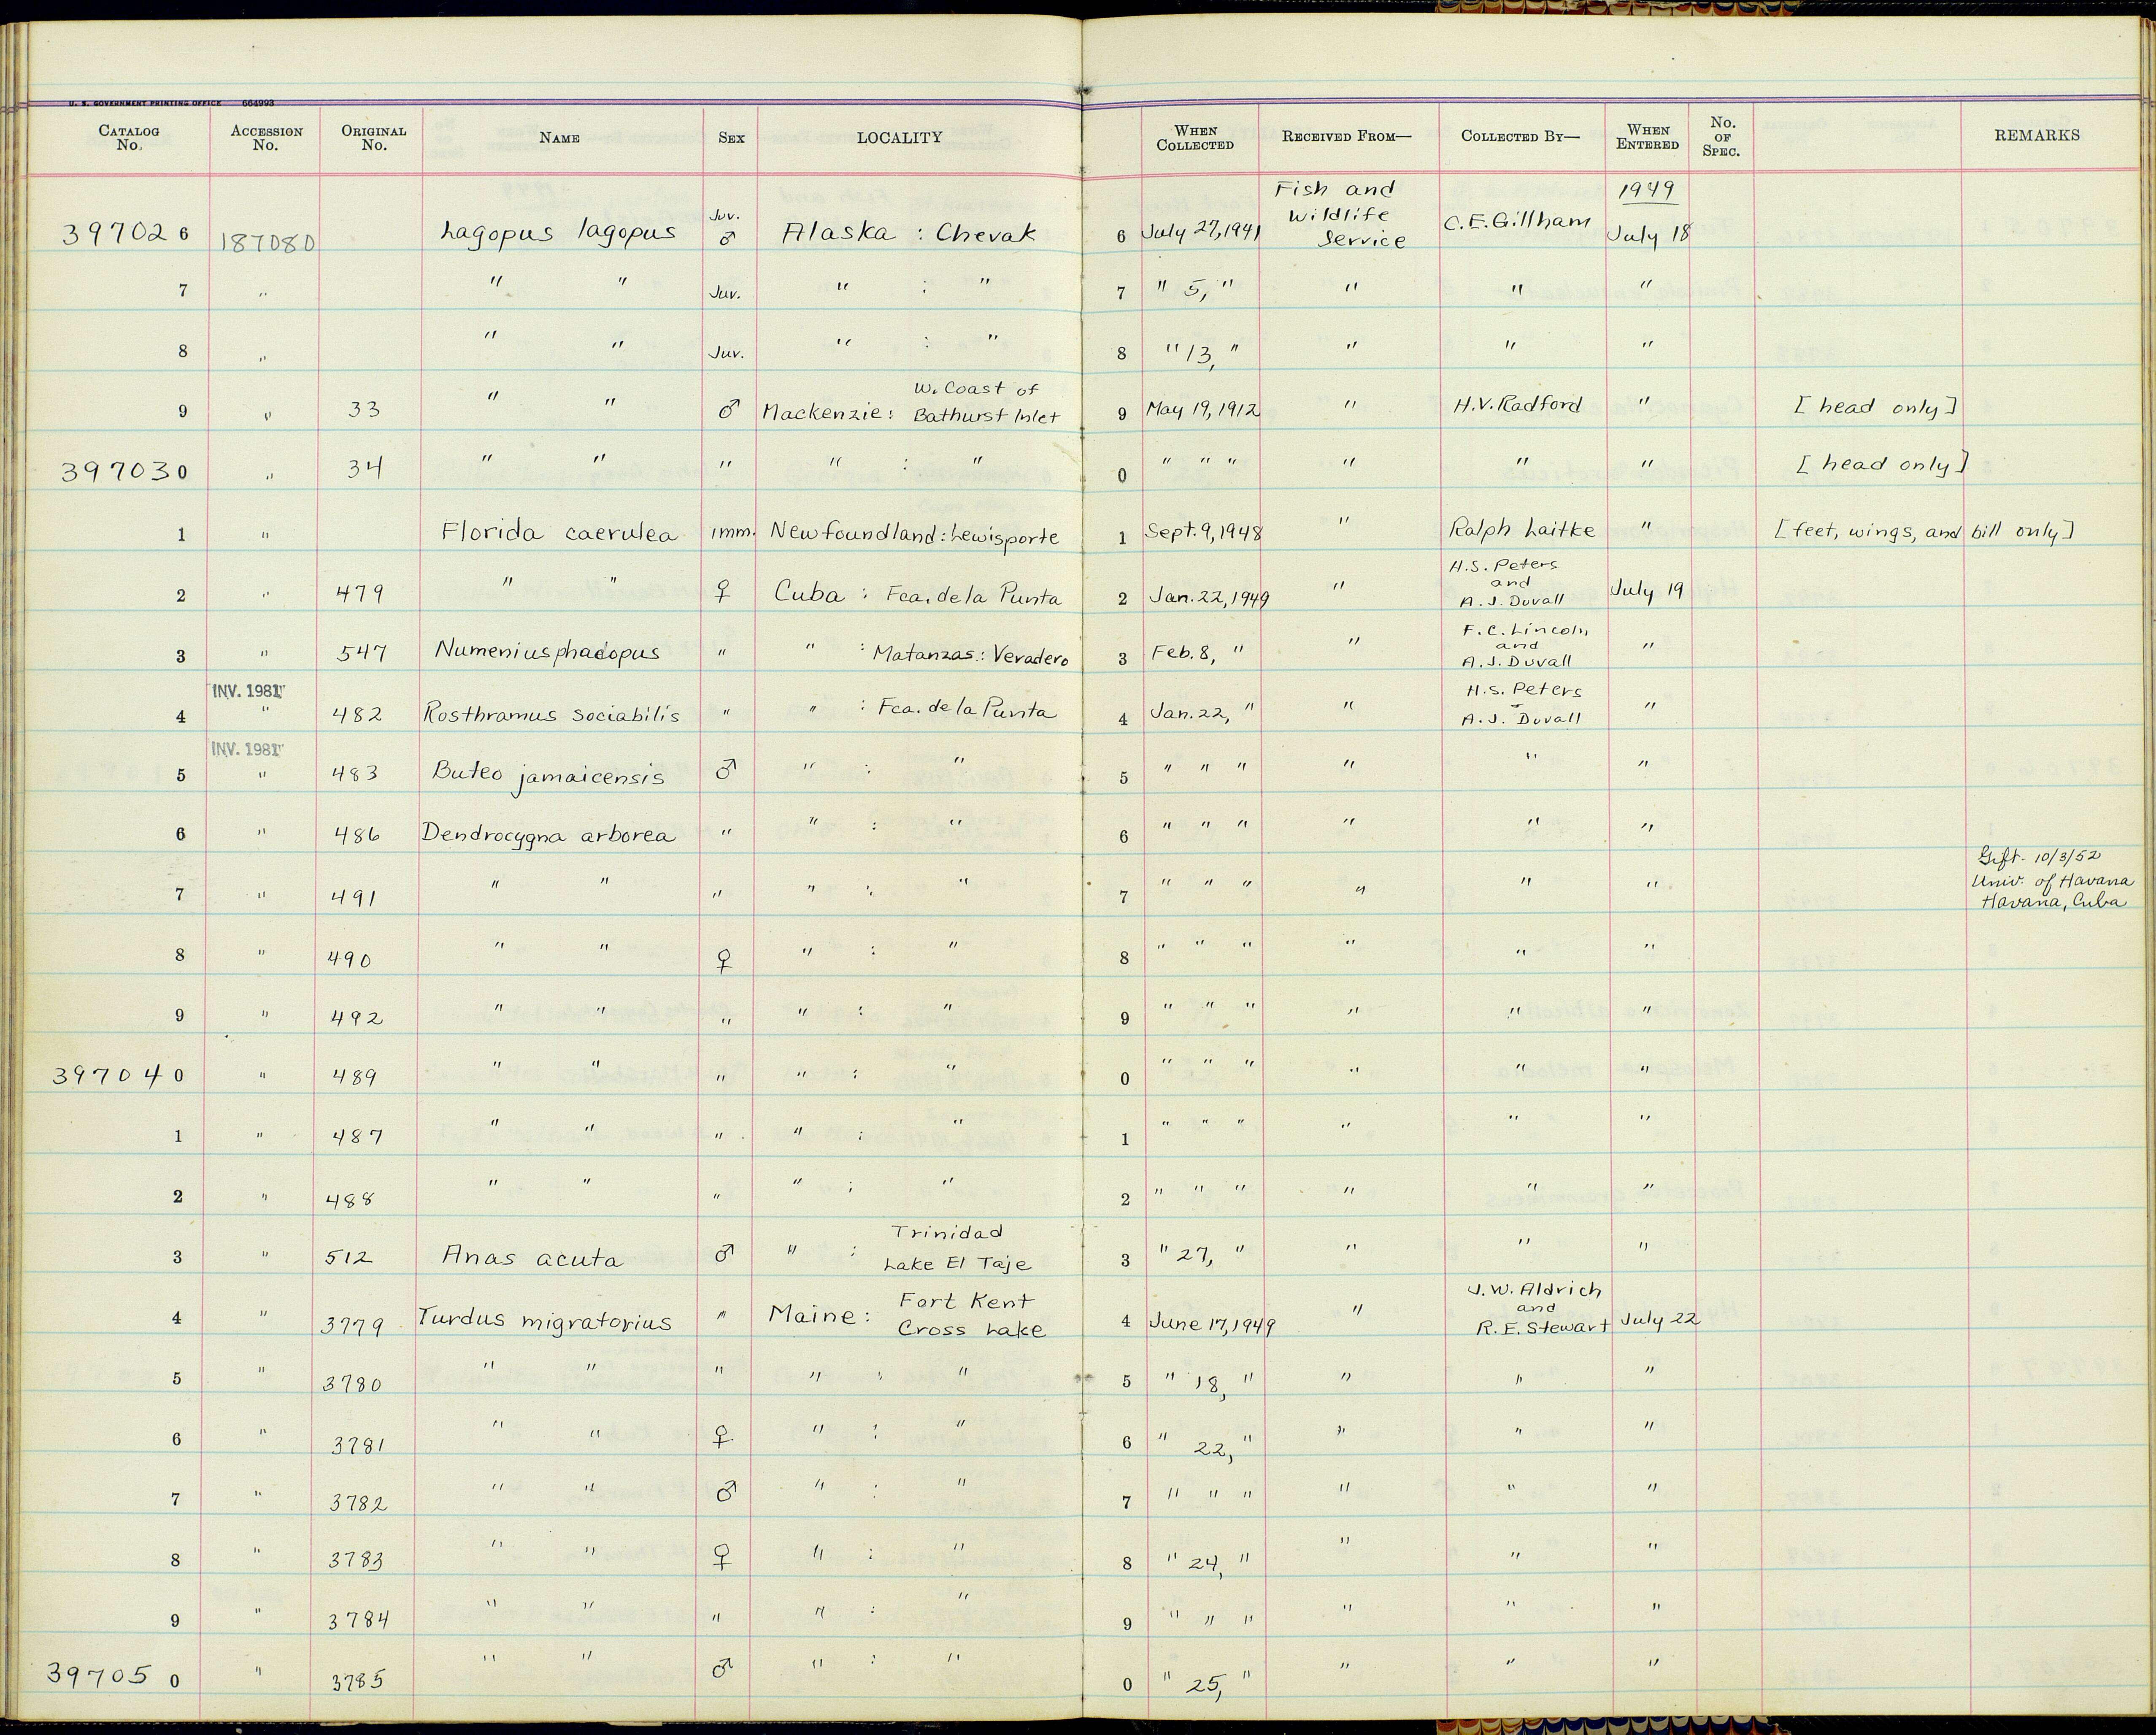 U. S. GOVERNMENT PRINTING OFFICE 664993
CATALOG No. ACCESSION No. ORIGINAL No. NAME SEX LOCALITY WHEN COLLECTED RECEIVED FROM— COLLECTED BY— WHEN ENTERED No. OF SPEC. REMARKS
397026 187080 Lagopus lagopus Juv. ♂ Alaska : Chevak 6 July 27, 1941 Fish and Wildlife Service C.E. Gillham 1949 July 18
7 " " " Juv. " : " 7 " 5, " " " "
8 " " " Juv. " : " 8 " 13, " " " "
9 " 33 " " ♂ Mackenzie: W. Coast of Bathurst Inlet 9 May 19, 1912 " H.V. Radford " [head only]
397030 " 34 " " " " : " 0 " " " " " " [head only]
1 " Florida caerulea imm. Newfoundland: Lewisporte 1 Sept. 9, 1948 " Ralph Laitke " [feet, wings, and bill only]
2 " 479 " " ♀ Cuba : Fca. de la Punta 2 Jan. 22, 1949 " H.S. Peters and A. J. Duvall July 19
3 " 547 Numenius phaeopus " " : Matanzas: Veradero 3 Feb. 8, " " F.C. Lincoln and A.J. Duvall "
INV. 1981
4 " 482 Rosthramus sociabilis " " : Fca. de la Punta 4 Jan. 22, " " H.S. Peters - A.J. Duvall "
INV. 1981
5 " 483 Buteo jamaicensis ♂ " : " 5 " " " " " "
6 " 486 Dendrocygna arborea " " : " 6 " " " " " "
7 " 491 " " " " : " 7 " " " " " " Gift - 10/3/52 Univ. of Havana Havana, Cuba
8 " 490 " " ♀ " : " 8 " " " " " "
9 " 492 " " " " : " 9 " " " " " "
397040 " 489 " " " " : " 0 " " " " " "
1 " 487 " " " " : " 1 " " " " " "
2 " 488 " " " " : " 2 " " " " " "
3 " 512 Anas acuta ♂ " : Trinidad Lake El Taje 3 " 27, " " " "
4 " 3779 Turdus migratorius " Maine: Fort Kent Cross Lake 4 June 17, 1949 " J.W. Aldrich and R.E. Stewart July 22
5 " 3780 " " " " : " 5 " 18, " " " "
6 " 3781 " " ♀ " : " 6 " 22, " " " "
7 " 3782 " " ♂ " : " 7 " " " " " "
8 " 3783 " " ♀ " : " 8 " 24, " " " "
9 " 3784 " " " " : " 9 " " " " " "
397050 " 3785 " " ♂ " : " 0 " 25, " " " "